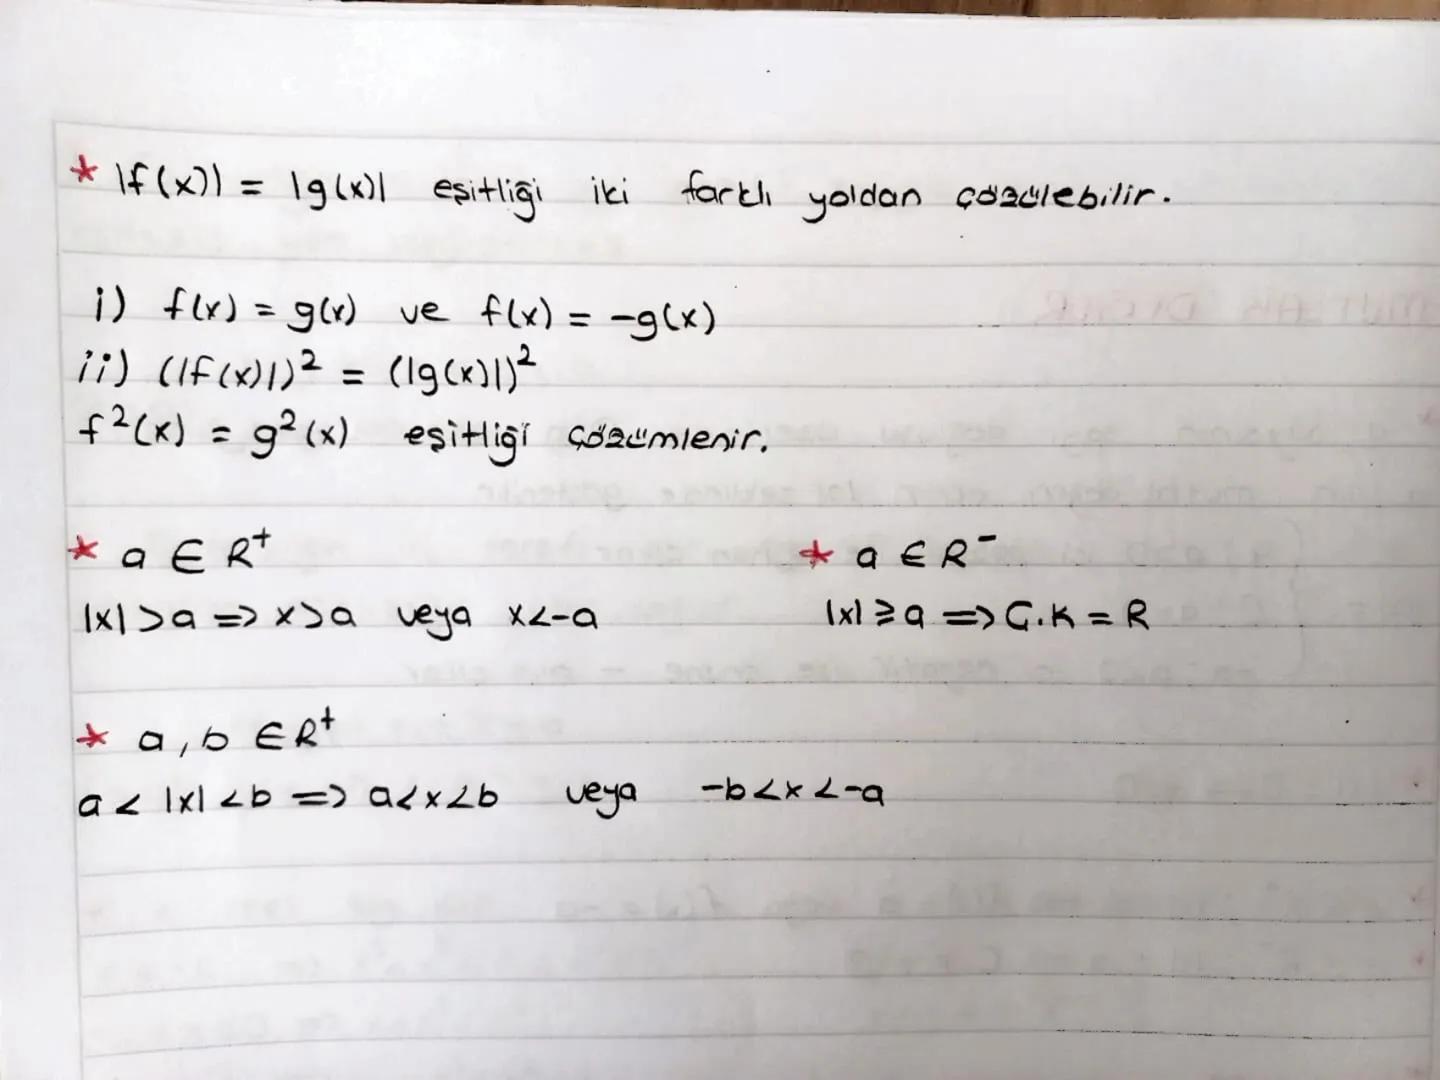 * |f(x)| = |g(x)| eşitliği iki farklı yoldan çözülebilir.
i) f(x) = g(x) ve f(x) = -g(x)
ii) (|f(x)|)² = (|g(x)|)²
f²(x) = g²(x) eşitliği çözümlenir.
* a ∈ R⁺
|x| > a => x > a veya x < -a
* a ∈ R⁻
|x| ⩾ a => Ç.K = R
* a, b ∈ R⁺
a < |x| < b => a < x < b veya -b < x < -a